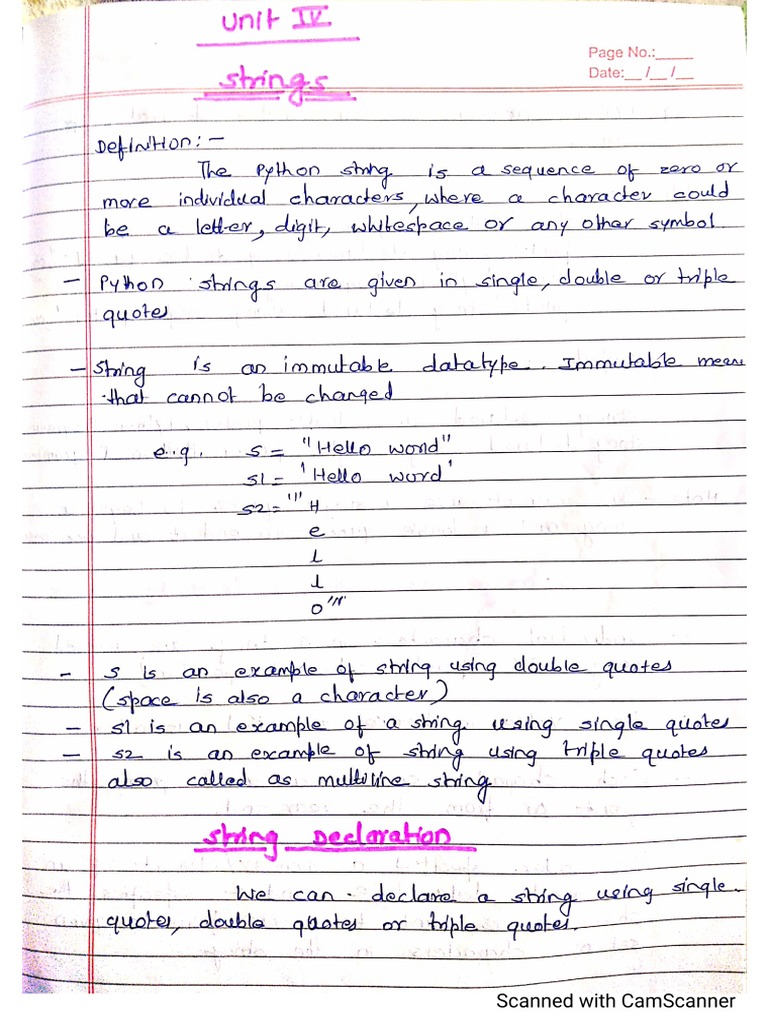 Unit IV
Page No.:____
Date:__ /__ /__
Strings
Definition:-
The Python string is a sequence of zero or
more individual characters, where a character could
be a letter, digit, whitespace or any other symbol
- Python strings are given in single, double or triple
quotes
- String is an immutable datatype. Immutable means
that cannot be changed
e.g. s = "Hello word"
s1 = 'Hello word'
s2 = '''H
e
l
l
o'''
- s is an example of string using double quotes
(space is also a character)
- s1 is an example of a string using single quotes
- s2 is an example of string using triple quotes
also called as multiline string
String Declaration
We can declare a string using single
quotes, double quotes or triple quotes.
Scanned with CamScanner